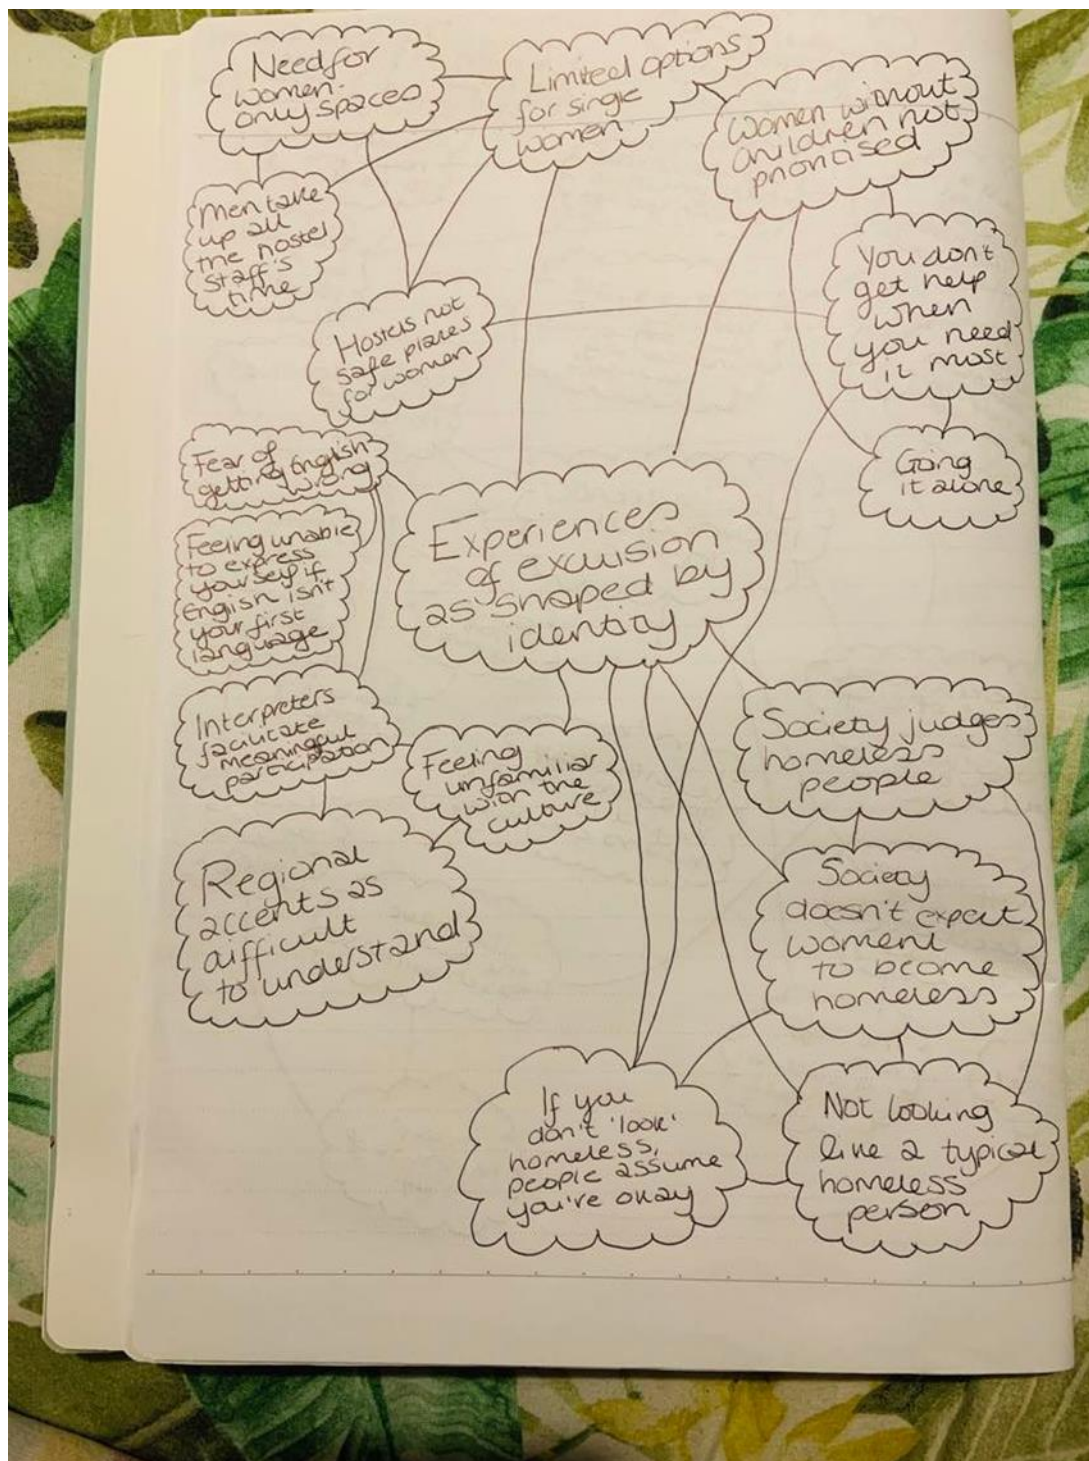 Need for
women-
only spaces
Limited options
for single
women
Women without
children not
prioritised
Men take
up all
the hostel
staff's
time
Hostels not
safe places
for women
You don't
get help
when
you need
it most
Going
it alone
Fear of
getting English
wrong
Feeling unable
to express
yourself if
English isn't
your first
language
Experiences
of exclusion
as shaped by
identity
Interpreters
facilitate
meaningful
participation
Feeling
unfamiliar
with the
culture
Society judges
homeless
people
Regional
accents as
difficult
to understand
Society
doesn't expect
women
to become
homeless
If you
don't 'look'
homeless,
people assume
you're okay
Not looking
like a typical
homeless
person